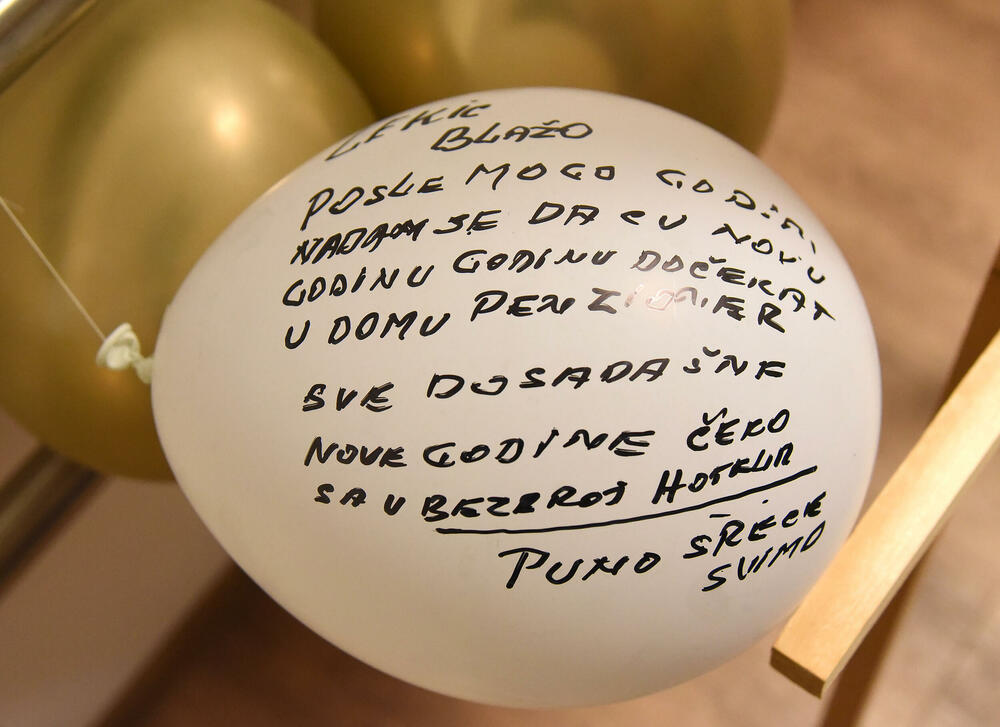 LEKIC
BLAŽO
POSLE MOGO GODINI
NADAM SE DA CU NOVU
GODINU GODINU DOČEKAT
U DOMU PENZIONER
SVE DOSADAŠNE
NOVE GODINE ČEKO
SAU BEZBROJ HOTELIR
PUNO SREĆE
SVIMO